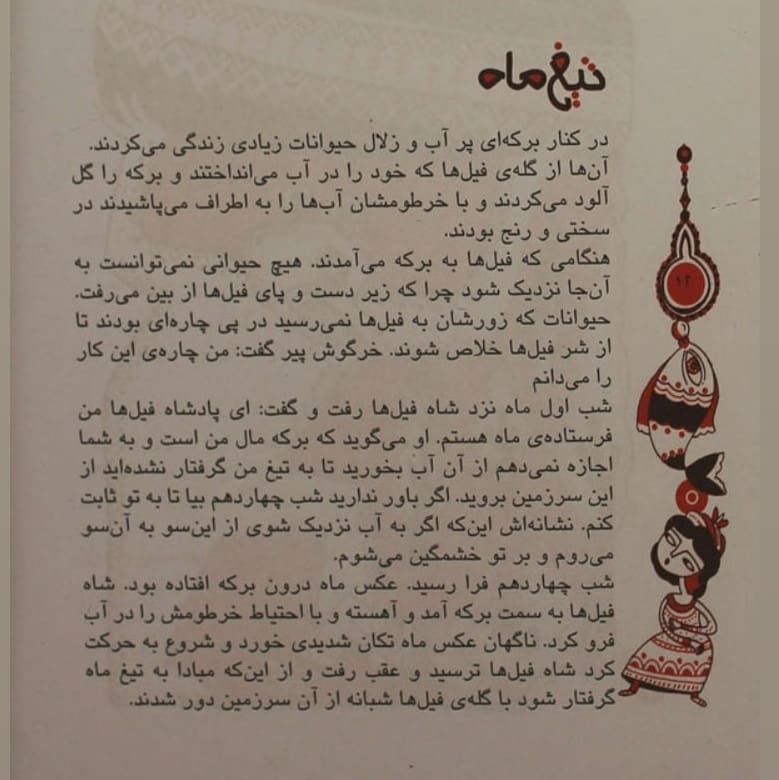 تیغ ماه
در کنار برکه‌ای پر آب و زلال حیوانات زیادی زندگی می‌کردند.
آن‌ها از گله‌ی فیل‌ها که خود را در آب می‌انداختند و برکه را گل
آلود می‌کردند و با خرطومشان آب‌ها را به اطراف می‌پاشیدند در
سختی و رنج بودند.
هنگامی که فیل‌ها به برکه می‌آمدند. هیچ حیوانی نمی‌توانست به
آن‌جا نزدیک شود چرا که زیر دست و پای فیل‌ها از بین می‌رفت.
حیوانات که زورشان به فیل‌ها نمی‌رسید در پی چاره‌ای بودند تا
از شر فیل‌ها خلاص شوند. خرگوش پیر گفت: من چاره‌ی این کار
را می‌دانم
شب اول ماه نزد شاه فیل‌ها رفت و گفت: ای پادشاه فیل‌ها من
فرستاده‌ی ماه هستم. او می‌گوید که برکه مال من است و به شما
اجازه نمی‌دهم از آن آب بخورید تا به تیغ من گرفتار نشده‌اید از
این سرزمین بروید. اگر باور ندارید شب چهاردهم بیا تا به تو ثابت
کنم. نشانه‌اش این‌که اگر به آب نزدیک شوی از این‌سو به آن‌سو
می‌روم و بر تو خشمگین می‌شوم.
شب چهاردهم فرا رسید. عکس ماه درون برکه افتاده بود. شاه
فیل‌ها به سمت برکه آمد و آهسته و با احتیاط خرطومش را در آب
فرو کرد. ناگهان عکس ماه تکان شدیدی خورد و شروع به حرکت
کرد شاه فیل‌ها ترسید و عقب رفت و از این‌که مبادا به تیغ ماه
گرفتار شود با گله‌ی فیل‌ها شبانه از آن سرزمین دور شدند.
۱۲